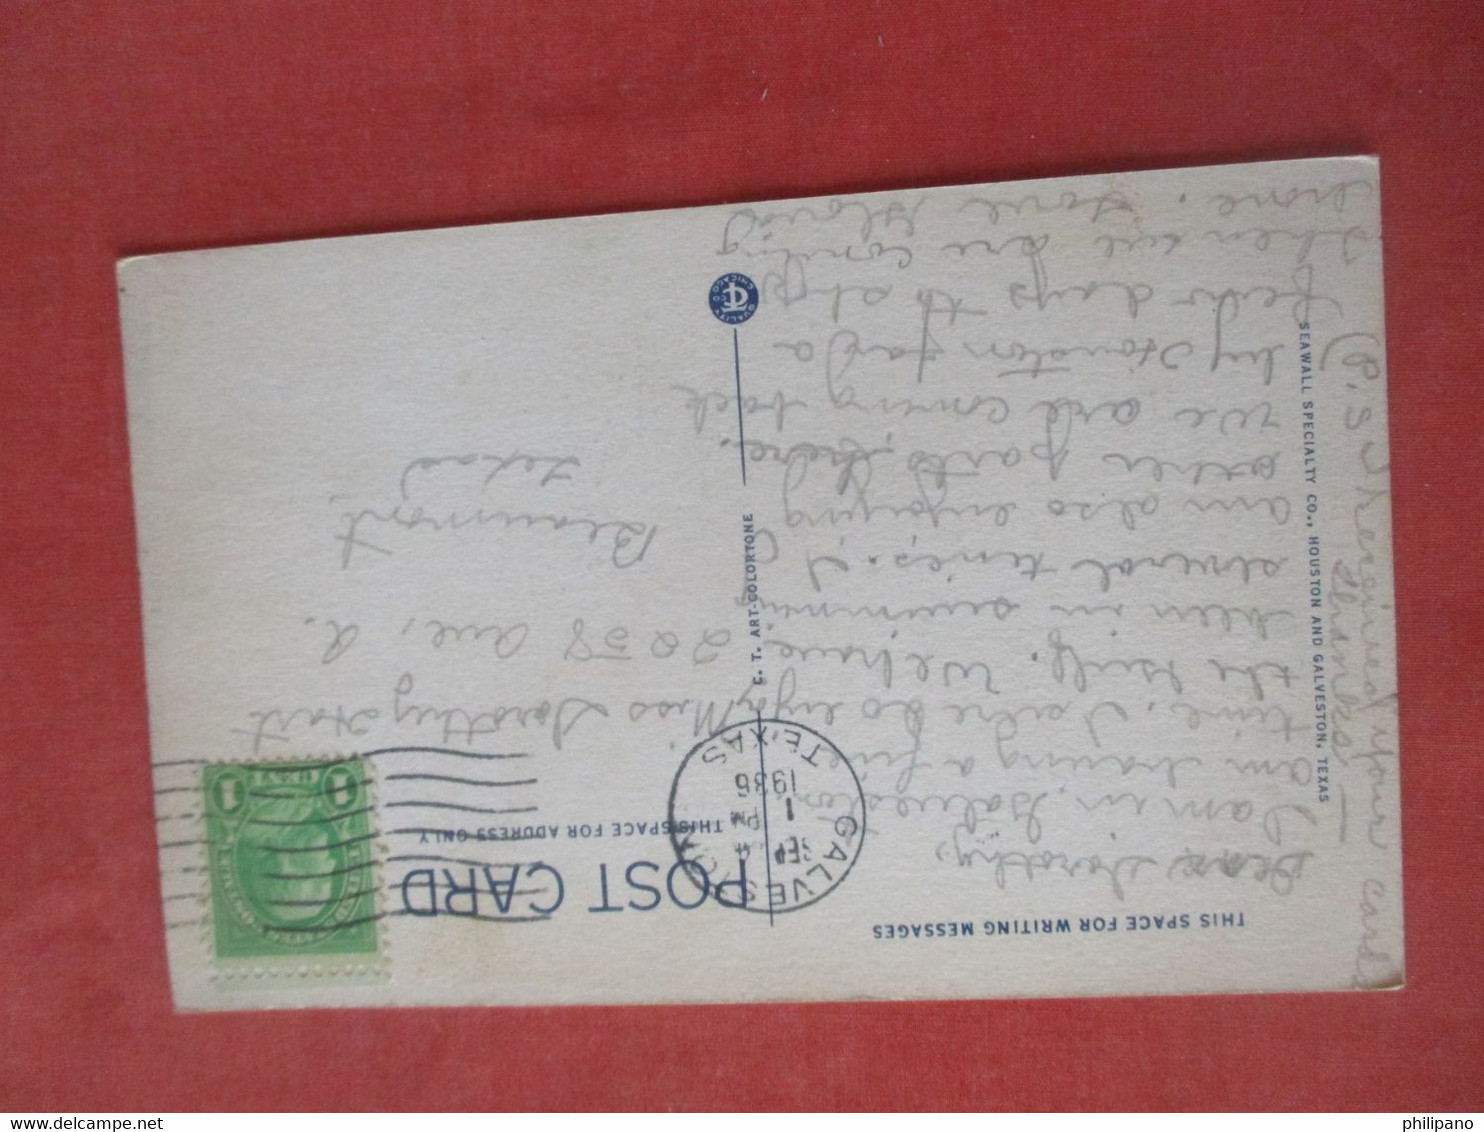 THIS SPACE FOR WRITING MESSAGES
POST CARD
THIS SPACE FOR ADDRESS ONLY
GALVESTON
SEP 1
PM
1936
TEXAS
1 CENT 1
Dear Dorothy,
I am in Galveston
am having a fine
time. I adre so enjoy
the surf. We have
been in swimming
several times. I
am also enjoying
other parts, here.
We are coming back
by Houston for a
few days to stop
when we are coming
home. Love Gloria
(P.S. I received your card
Thanks—
Miss Dorothy Hart
2258 Ave, A.
Beaumont
Texas
C. T. ART-COLORTONE
QUALITY CO. CHICAGO
SEAWALL SPECIALTY CO., HOUSTON AND GALVESTON, TEXAS
philipano